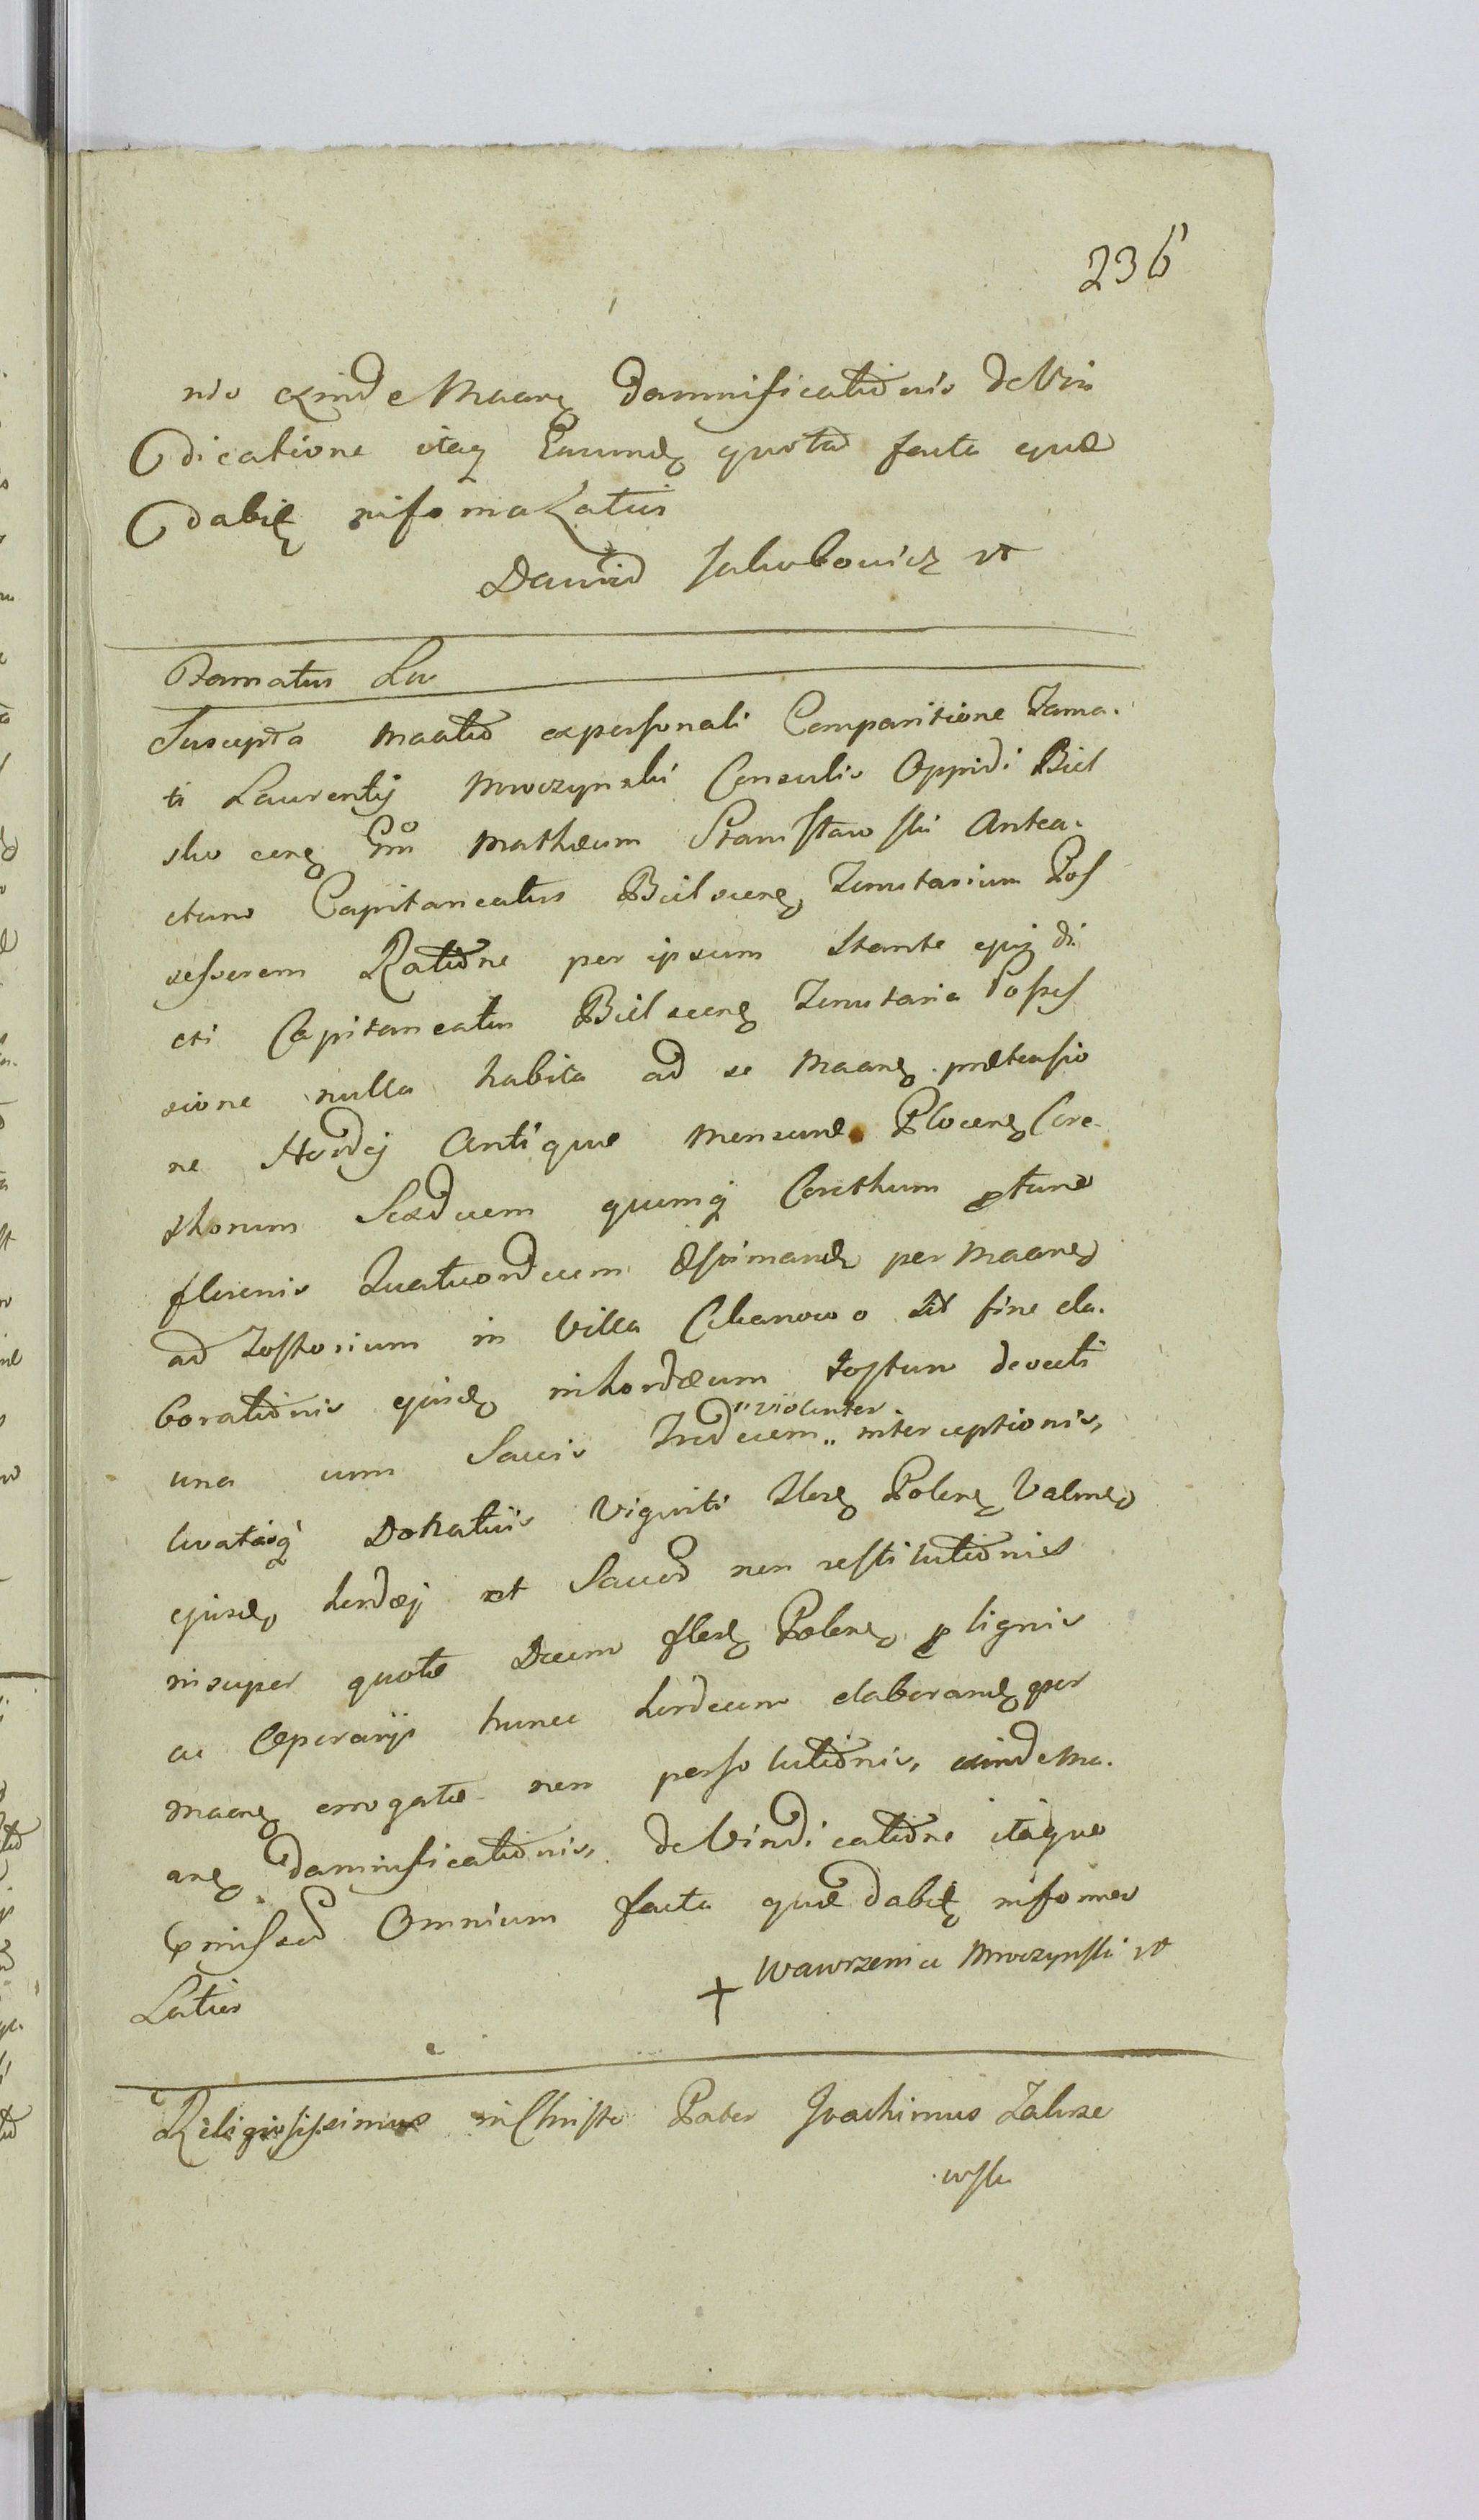 236
nis exinde Maare Damnificationis de Vin
dicatione itaq Earumd quotad facta quæ
dabit infoma Latius
Dawid Jakubowicz
Famatus La
Suscepta maatio ex personali Comparitione Fama-
ti Laurentij Mroczynski Consulis Oppidi Biel
sko cone Gnm Mathæum Stanisławski Antea-
ctum Capitaneatus Bielscen Tenutarium Pos
sessorem Ratione per ipsum Stante ejus di
cti Capitaneatus Bielscen Tenutaria Posses
sione nulla habita ad se Maane prætensio
ne Hordej Antiquæ Mensuræ Plocen Core-
thorum Sexdecem quemq Corethum ptunc
florenis Quatuordecem Æstimand per Maane
ad Tostorium in Villa Cekanowo Sit fine ela-
borationis ejusd in hordæum tostum devecti
una cum Saccis Tredecem " interceptionis,
"violenter
levatisq Dotratiis Viginti flore Polone Valen
ejusd hordæj et Saccor non restitutionis
insuper quotæ Decem flore Polone p lignis
ac Operarijs hunc hordeum elaborand per
Maane errogatæ non persolutionis, exinde Ma-
are damnificationis, de Vindicatione itaque
præmissor Omnium facta quæ dabit infoma
Latius
+ Wawrzeniec Mroczynski
Religiosissimus in Christo Pater Joachimus Zakrze
wski